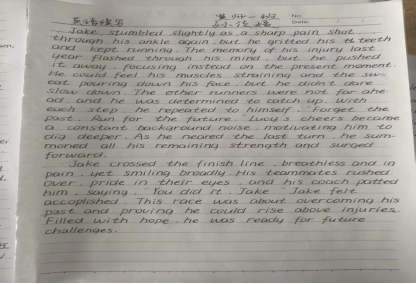 英语续写
No
Date
Jake stumbled slightly as a sharp pain shot
through his ankle again but he gritted his teeth
and kept running. The memory of his injury last
year flashed through his mind, but he pushed
it away, focusing instead on the present moment.
He could feel his muscles straining and the sw-
eat pouring down his face, but he didn't dare
slow down. The other runners were not far ahe-
ad, and he was determined to catch up. With
each step, he repeated to himself, "Forget the
past. Run for the future." Lucy's cheers became
a constant background noise, motivating him to
dig deeper. As he neared the last turn, he sum-
moned all his remaining strength and surged
forward.
Jake crossed the finish line, breathless and in
pain, yet smiling broadly. His teammates rushed
over, pride in their eyes, and his coach patted
him, saying, "You did it, Jake." Jake felt
accoplished. This race was about overcoming his
past and proving he could rise above injuries.
Filled with hope, he was ready for future
challenges.